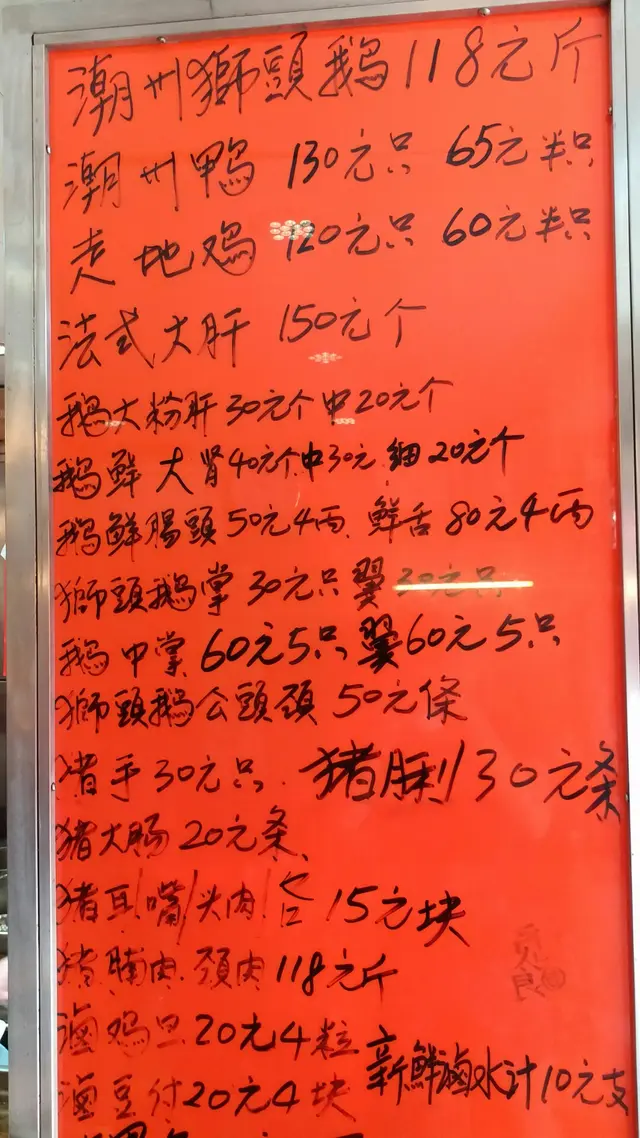 潮州獅頭鵝118元斤
潮州鸭 130元只 65元半只
走地鸡 120元只 60元半只
法式大肝 150元个
鵝大粉肝30元个中20元个
鵝鮮大肾40元个中30元 細20元个
鵝鮮腸頭50元4両 鮮舌80元4両
獅頭鵝掌 30元只 翼30元只
鵝中掌60元5只翼60元5只
獅頭鵝公頭頚 50元條
猪手30元只 猪脷30元条
猪大肠20元条
猪耳/嘴/头肉/ 15元块
猪腩肉 頚肉118元斤
滷鸡旦20元4粒
滷豆付20元4块
新鮮滷水汁10元支